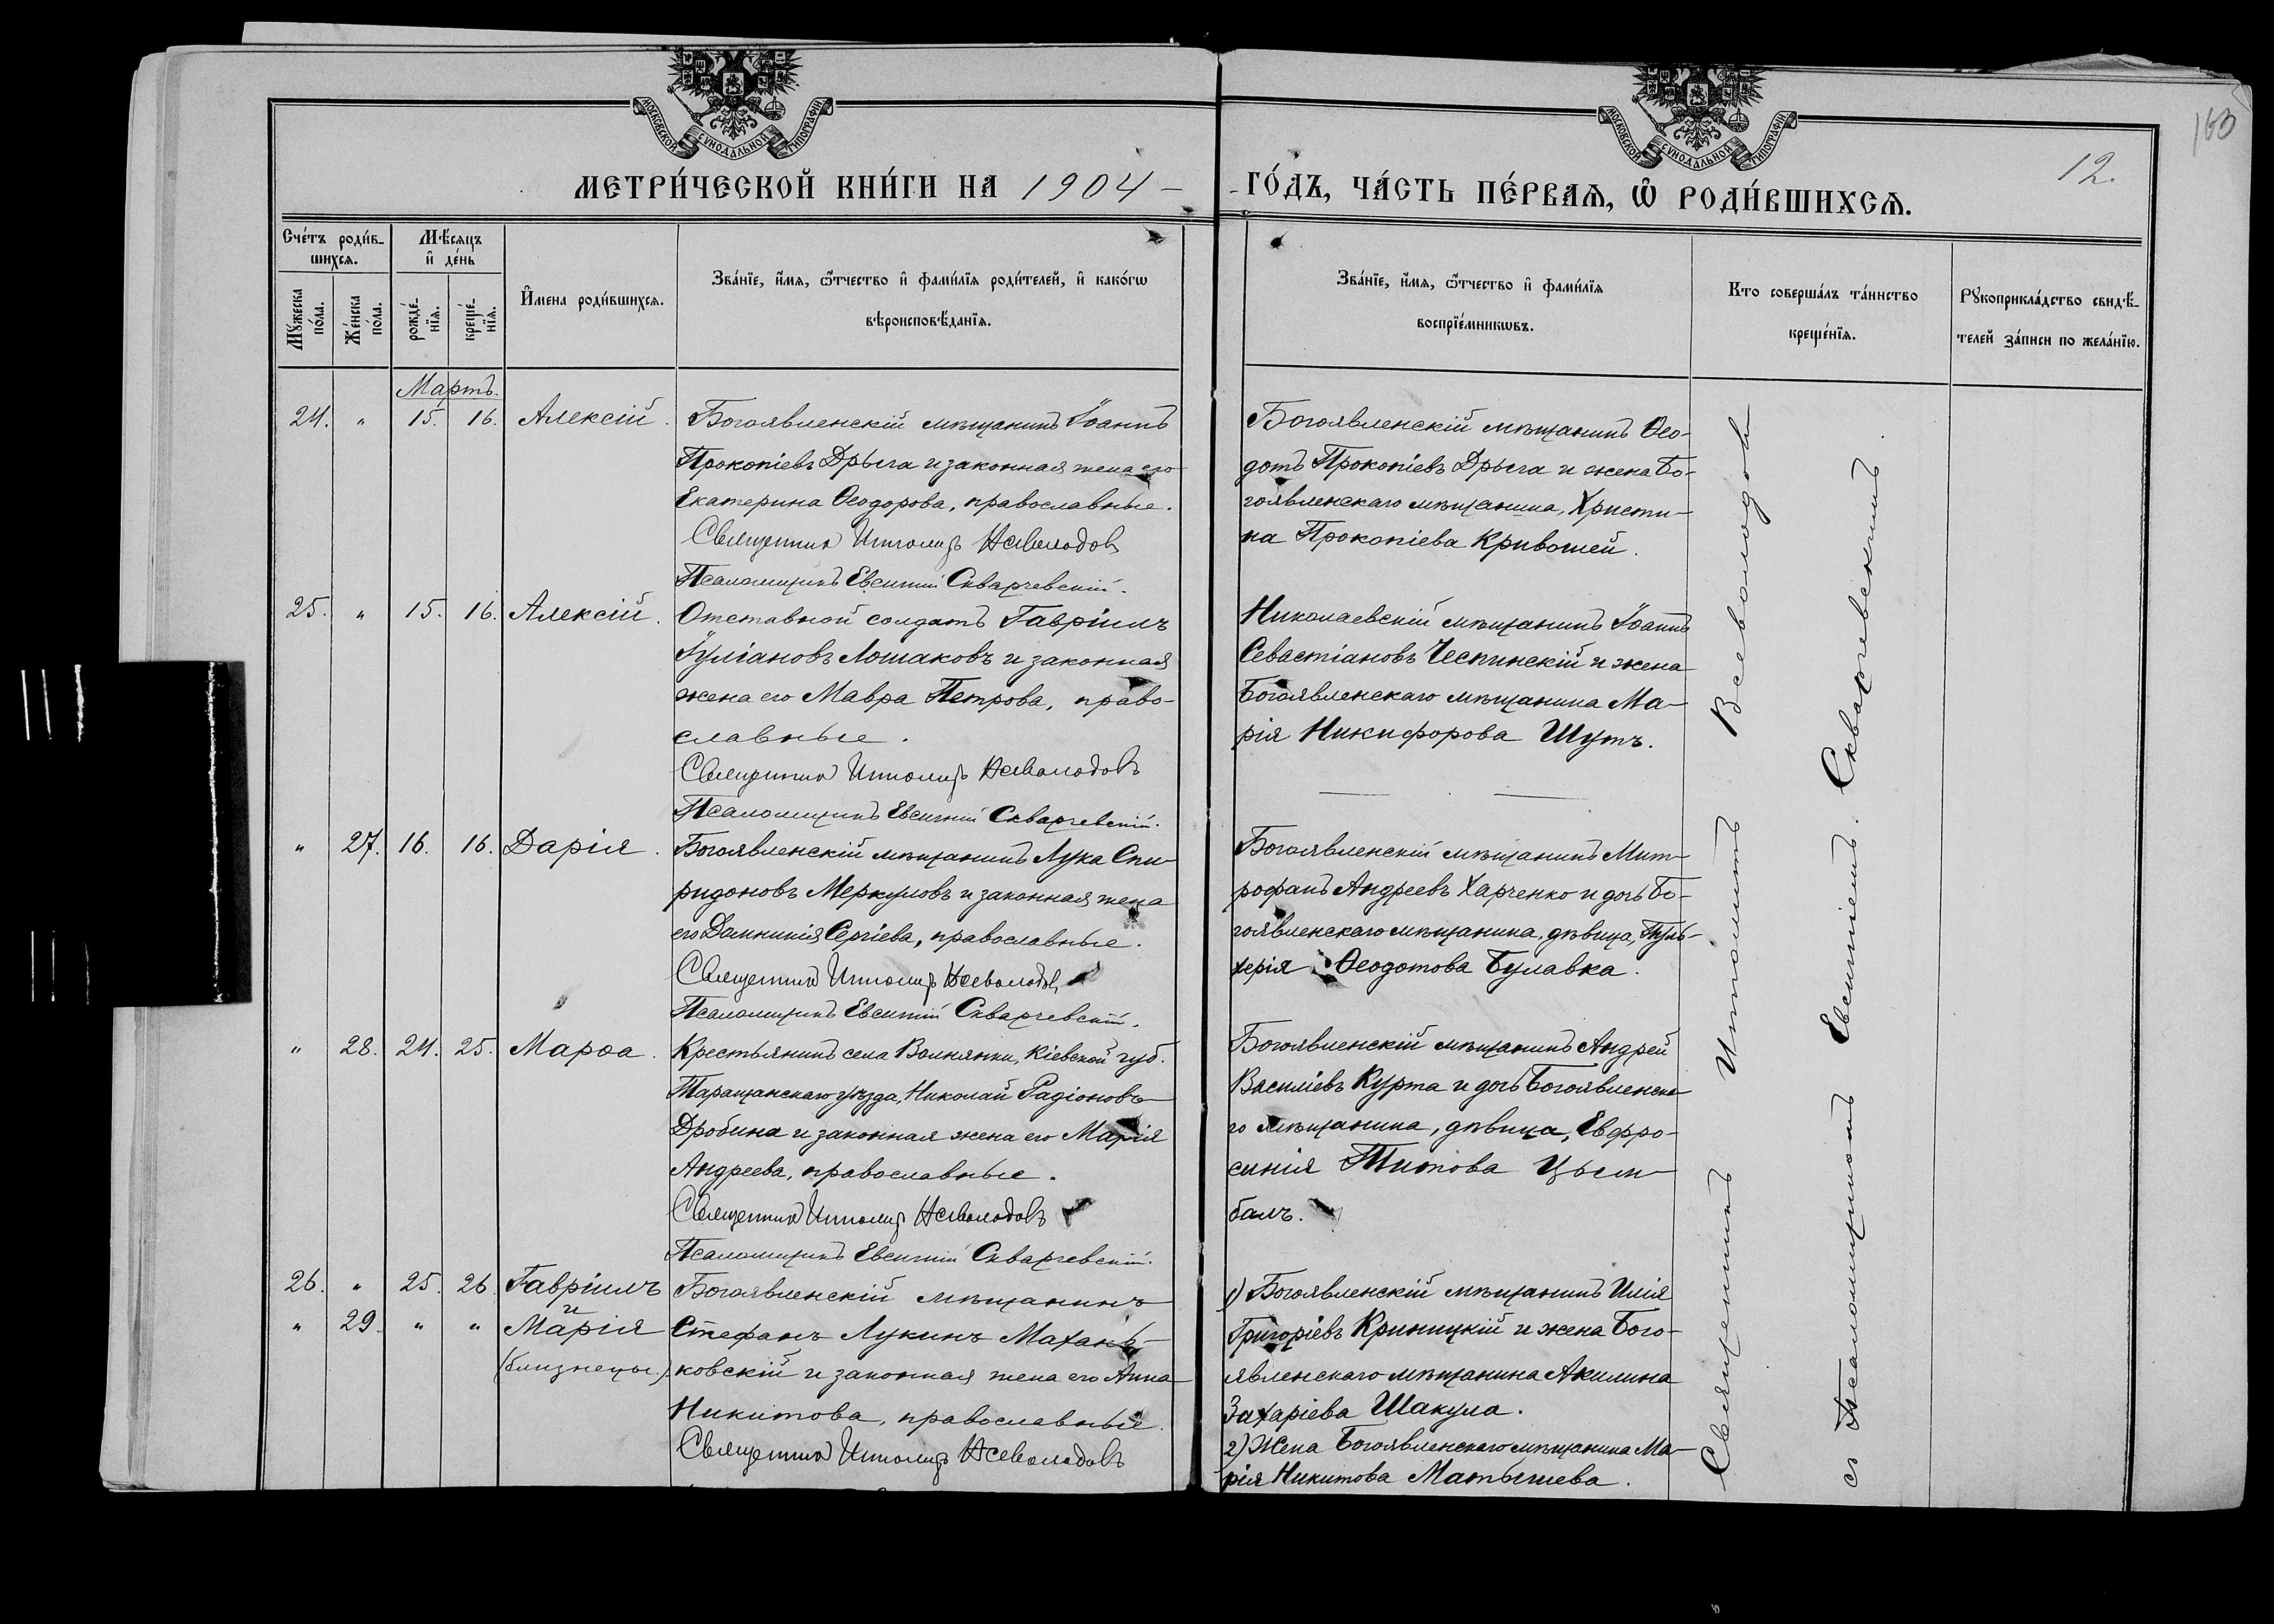 МОСКОВСКОЙ СѴНОДАЛЬНОЙ ТИПОГРАФІИ
МОСКОВСКОЙ СѴНОДАЛЬНОЙ ТИПОГРАФІИ
163
12.
МЕТРИ́ЧЕСКОЙ КНИ́ГИ НА 1904 –
– ГО́ДЪ, ЧА́СТЬ ПЕ́РВАѦ, Ѡ҆ РОДИ́ВШИХСѦ.
Сче́тъ роди́в-
шихсѧ.
Мѣ́сѧцъ
и҆ де́нь
Мꙋ́жеска
по́ла.
Же́нска
по́ла.
рожде́-
нїѧ.
креще́-
нїѧ.
И҆мена роди́вшихсѧ.
Зва́нїе, и҆́мѧ, ѻ҆́тчество и҆ фами́лїѧ роди́телей, и҆ како́гѡ
вѣроисповѣ́данїѧ.
Зва́нїе, и҆́мѧ, ѻ҆́тчество и҆ фами́лїѧ
воспрїе́мникѡвъ.
Кто соверша́лъ та́инство
креще́нїѧ.
Рꙋкоприкла́дство свидѣ́-
телей за́писи по жела́нїю.
Мартъ.
24. " 15. 16. Алексій.
Богоявленскій мѣщанинъ Іоаннъ
Прокопіевъ Дрыга и законная жена его
Екатерина Ѳеодорова, православные.
Священникъ Ипполитъ Всеволодовъ
Псаломщикъ Евсигній Скварчевскій.
Богоявленскій мѣщанинъ Ѳео-
дотъ Прокопіевъ Дрыга и жена Бо-
гоявленскаго мѣщанина, Христи-
на Прокопіева Кривошей.
25. " 15. 16. Алексій.
Отставной солдатъ Гавріилъ
Іуліановъ Лошаковъ и законная
жена его Мавра Петрова, право-
славные.
Священникъ Ипполитъ Всеволодовъ
Псаломщикъ Евсигній Скварчевскій.
Николаевскій мѣщанинъ Іоаннъ
Севастіановъ Чеспинскій и жена
Богоявленскаго мѣщанина Ма-
рія Никифорова Шутъ.
" 27. 16. 16. Дарія.
Богоявленскій мѣщанинъ Лука Спи-
ридоновъ Меркуловъ и законная жена
его Домникія Сергіева, православные.
Священникъ Ипполитъ Всеволодовъ
Псаломщикъ Евсигній Скварчевскій.
Богоявленскій мѣщанинъ Мит-
рофанъ Андреевъ Харченко и дочь Бо-
гоявленскаго мѣщанина, дѣвица, Пуль-
херія Ѳеодотова Булавка.
" 28. 24. 25. Марѳа.
Крестьянинъ села Волнянки, Кіевской губ.
Таращанскаго уѣзда, Николай Радіоновъ
Дробина и законная жена его Марія
Андреева, православные.
Священникъ Ипполитъ Всеволодовъ
Псаломщикъ Евсигній Скварчевскій.
Богоявленскій мѣщанинъ Андрей
Василіевъ Курта и дочь Богоявленска-
го мѣщанина, дѣвица, Евфро-
синія Титова Цым-
балъ.
26. " 25. 26. Гавріилъ
и
" 29. " " Марія
(близнецы.)
Богоявленскій мѣщанинъ
Стефанъ Лукинъ Махань-
ковскій и законная жена его Анна
Никитова, православные.
Священникъ Ипполитъ Всеволодовъ
1) Богоявленскій мѣщанинъ Илія
Григоріевъ Криницкій и жена Бого-
явленскаго мѣщанина Акилина
Захаріева Шакула.
2) Жена Богоявленскаго мѣщанина Ма-
рія Никитова Матышева.
Священникъ Ипполитъ Всеволодовъ
съ Псаломщикомъ Евсигніемъ Скварчевскимъ.